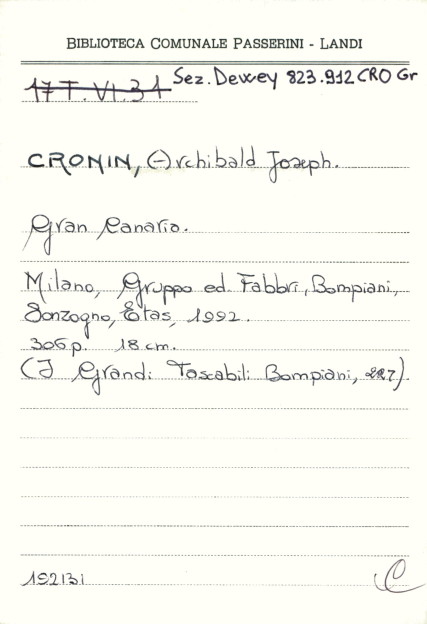 BIBLIOTECA COMUNALE PASSERINI - LANDI
17 T. VI. 31 Sez. Dewey 823.912 CRO Gr
CRONIN, Archibald Joseph.
Gran Canaria.
Milano, Gruppo ed. Fabbri, Bompiani,
Sonzogno, Etas, 1992.
306 p. 18 cm.
(I Grandi Tascabili Bompiani, 227).
C